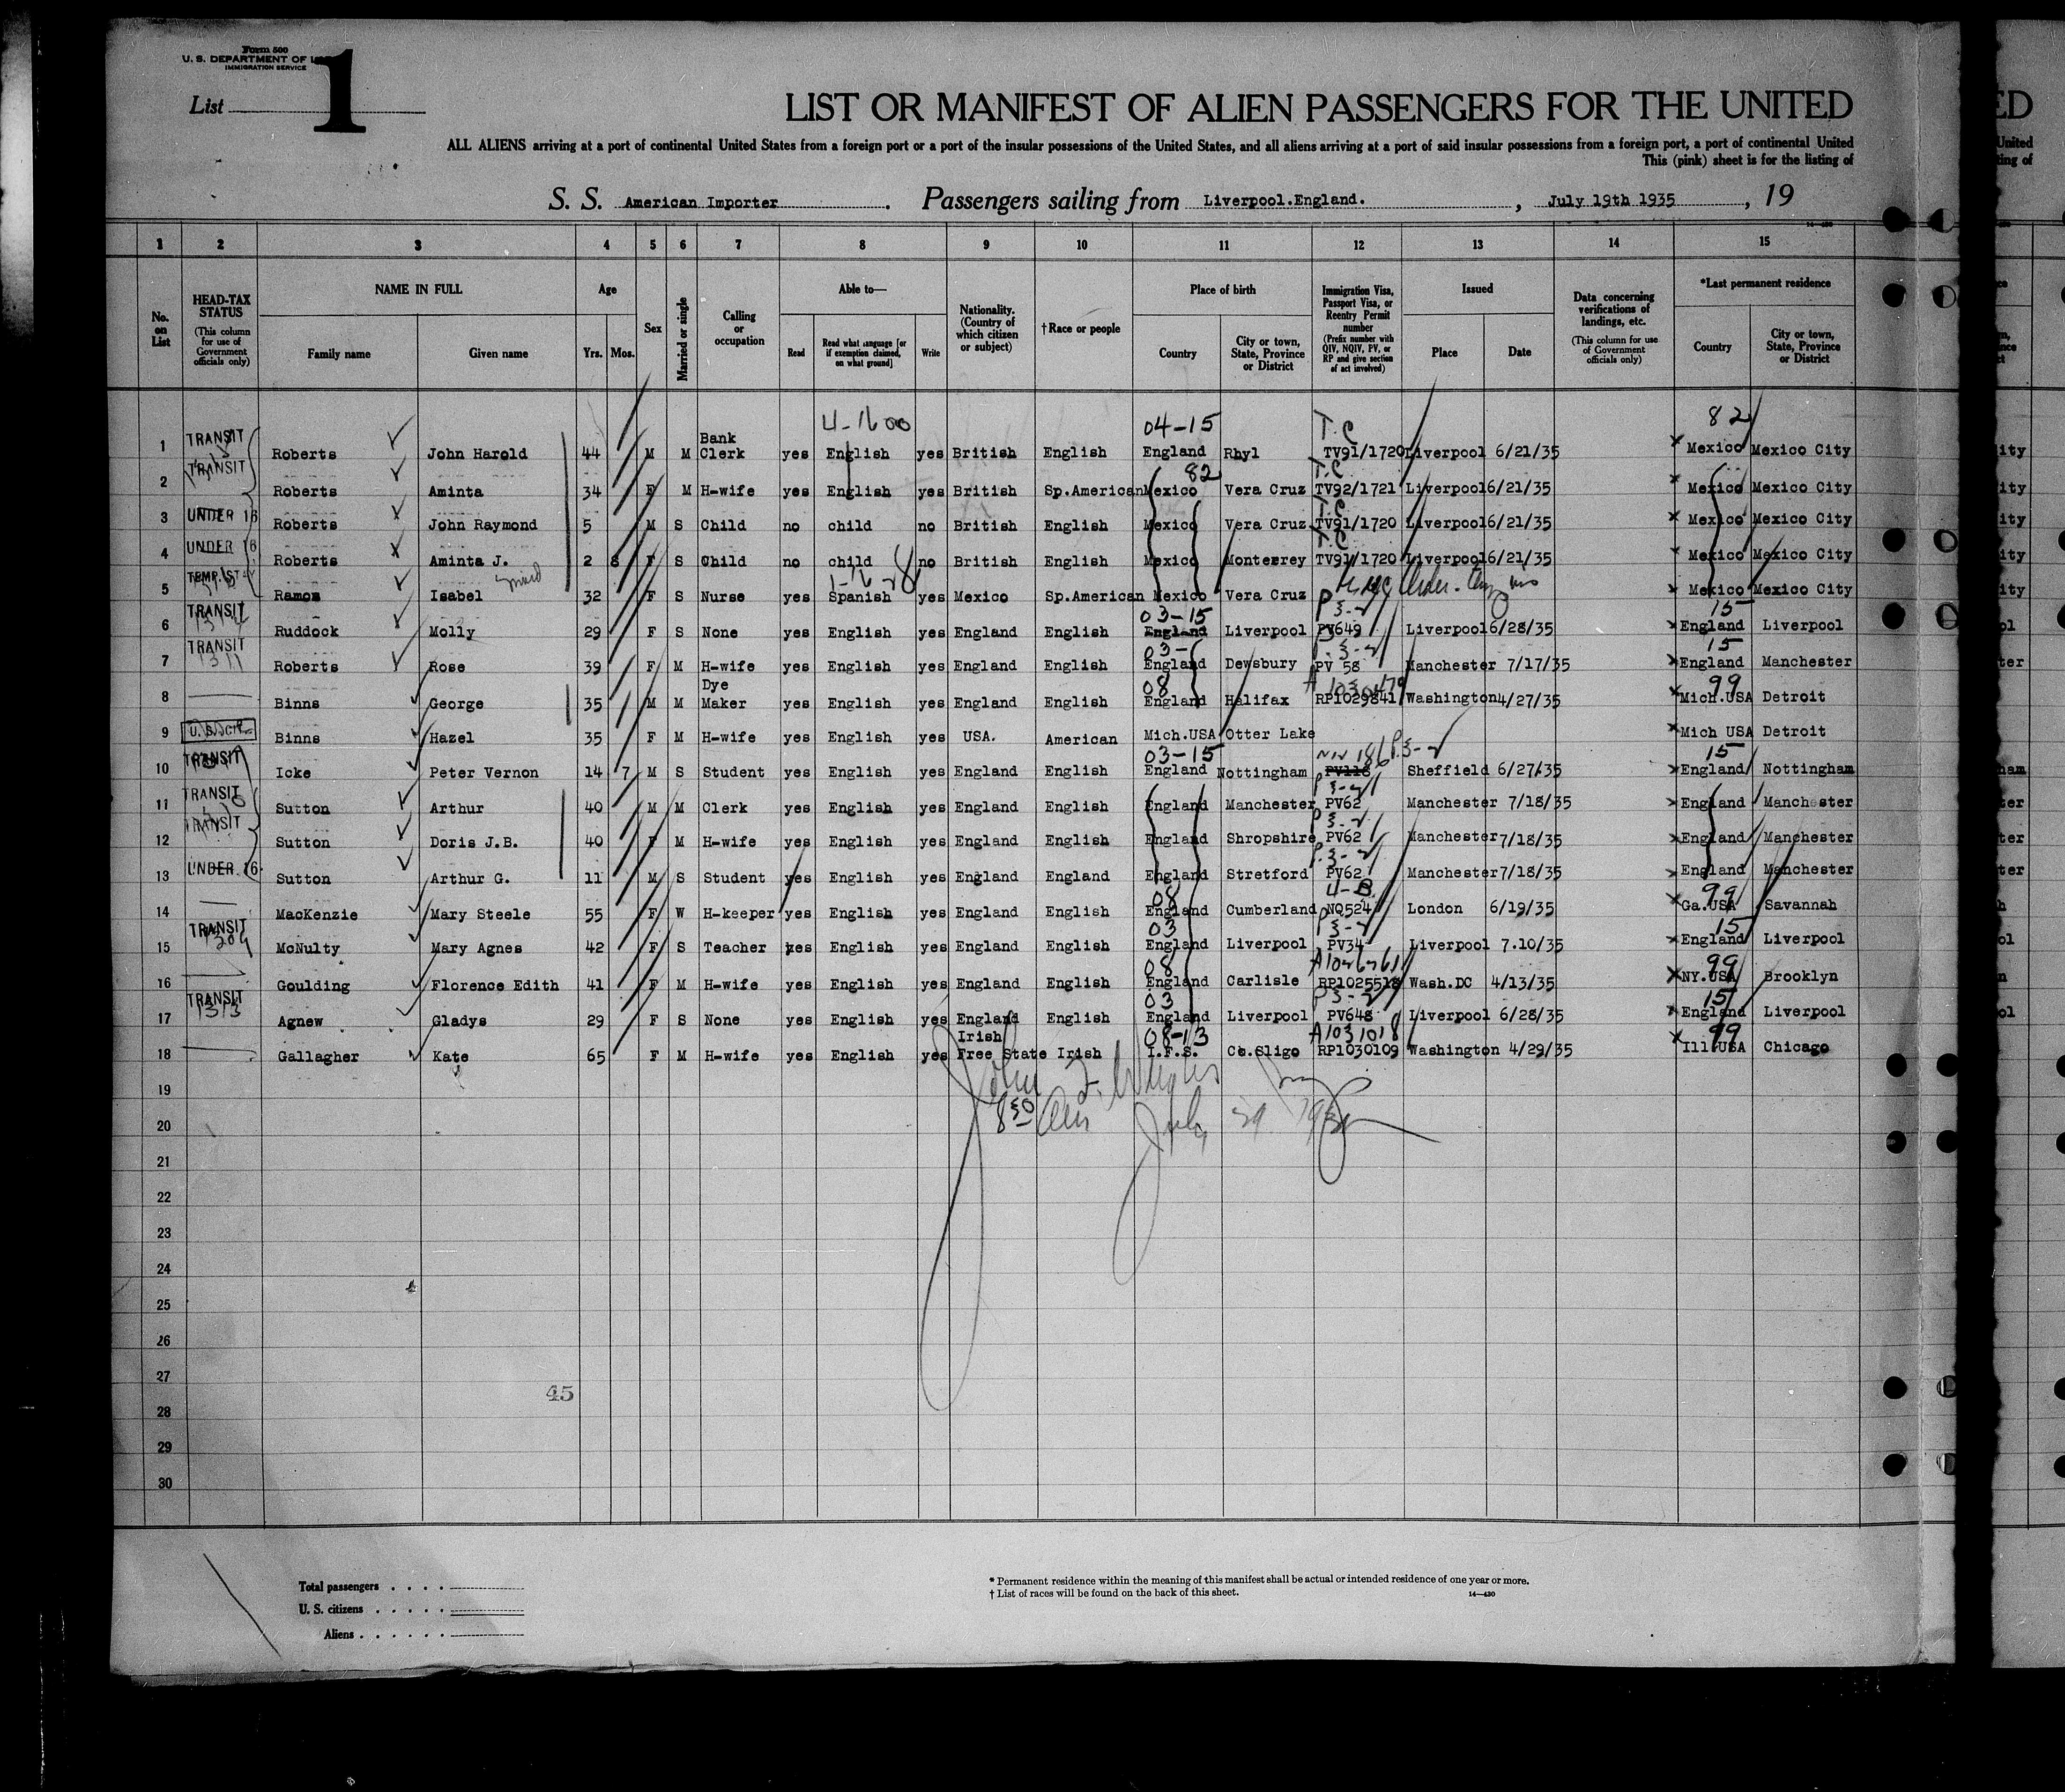 Form 500
U. S. DEPARTMENT OF
IMMIGRATION SERVICE
List 1
LIST OR MANIFEST OF ALIEN PASSENGERS FOR THE UNITED
ALL ALIENS arriving at a port of continental United States from a foreign port or a port of the insular possessions of the United States, and all aliens arriving at a port of said insular possessions from a foreign port, a port of continental United
This (pink) sheet is for the listing of
S. S. American Importer. Passengers sailing from Liverpool.England., July 19th 1935, 19
1 2 3 4 5 6 7 8 9 10 11 12 13 14 15
No. on List
HEAD-TAX STATUS (This column for use of Government officials only)
NAME IN FULL Family name Given name
Age Yrs. Mos.
Sex
Married or single
Calling or occupation
Able to— Read Read what language [or if exemption claimed, on what ground] Write
Nationality. (Country of which citizen or subject)
†Race or people
Place of birth Country City or town, State, Province or District
Immigration Visa, Passport Visa, or Reentry Permit number (Prefix number with QIV, NQIV, PV, or RP and give section of act involved)
Issued Place Date
Data concerning verifications of landings, etc. (This column for use of Government officials only)
*Last permanent residence Country City or town, State, Province or District
4-1600 04-15 T.C 82
1 TRANSIT Roberts John Harold 44 M M Bank Clerk yes English yes British English England Rhyl TV91/1720 Liverpool 6/21/35 Mexico Mexico City
82 T.C
2 TRANSIT Roberts Aminta 34 F M H-wife yes English yes British Sp.American Mexico Vera Cruz TV92/1721 Liverpool 6/21/35 Mexico Mexico City
T.C
3 UNDER 16 Roberts John Raymond 5 M S Child no child no British English Mexico Vera Cruz TV91/1720 Liverpool 6/21/35 Mexico Mexico City
T.C
4 UNDER 16 Roberts Aminta J. 2 8 F S Child no child no British English Mexico Monterrey TV91/1720 Liverpool 6/21/35 Mexico Mexico City
5 Ramos Isabel 32 F S Nurse yes Spanish yes Mexico Sp.American Mexico Vera Cruz Mexico Mexico City
03-15 P 3-2 15
6 TRANSIT Ruddock Molly 29 F S None yes English yes England English England Liverpool PV649 Liverpool 6/28/35 England Liverpool
03- 15
7 TRANSIT 1311 Roberts Rose 39 F M H-wife yes English yes England English England Dewsbury PV 58 Manchester 7/17/35 England Manchester
08 99
8 Binns George 35 M M Dye Maker yes English yes England English England Halifax RP1029841 Washington 4/27/35 Mich.USA Detroit
9 Binns Hazel 35 F M H-wife yes English yes USA. American Mich.USA Otter Lake Mich USA Detroit
03-15 P.3-2 15
10 TRANSIT Icke Peter Vernon 14 7 M S Student yes English yes England English England Nottingham PV118 Sheffield 6/27/35 England Nottingham
11 TRANSIT Sutton Arthur 40 M M Clerk yes English yes England English England Manchester PV62 Manchester 7/18/35 England Manchester
12 TRANSIT Sutton Doris J.B. 40 F M H-wife yes English yes England English England Shropshire PV62 Manchester 7/18/35 England Manchester
13 UNDER 16 Sutton Arthur G. 11 M S Student yes English yes England England England Stretford PV62 Manchester 7/18/35 England Manchester
08 4-B 99
14 MacKenzie Mary Steele 55 F W H-keeper yes English yes England English England Cumberland NQ524 London 6/19/35 Ga.USA Savannah
03 15
15 TRANSIT McNulty Mary Agnes 42 F S Teacher yes English yes England English England Liverpool PV34 Liverpool 7.10/35 England Liverpool
08 99
16 Goulding Florence Edith 41 F M H-wife yes English yes England English England Carlisle RP1025518 Wash.DC 4/13/35 NY.USA Brooklyn
03 15
17 TRANSIT 1313 Agnew Gladys 29 F S None yes English yes England English England Liverpool PV648 Liverpool 6/28/35 England Liverpool
08-13 A1031018 99
18 Gallagher Kate 65 F M H-wife yes English yes Irish Free State Irish I.F.S. Co.Sligo RP1030109 Washington 4/29/35 Ill.USA Chicago
19
20
21
22
23
24
25
26
27
45
28
29
30
Total passengers
U. S. citizens
Aliens
* Permanent residence within the meaning of this manifest shall be actual or intended residence of one year or more.
† List of races will be found on the back of this sheet. 14—430